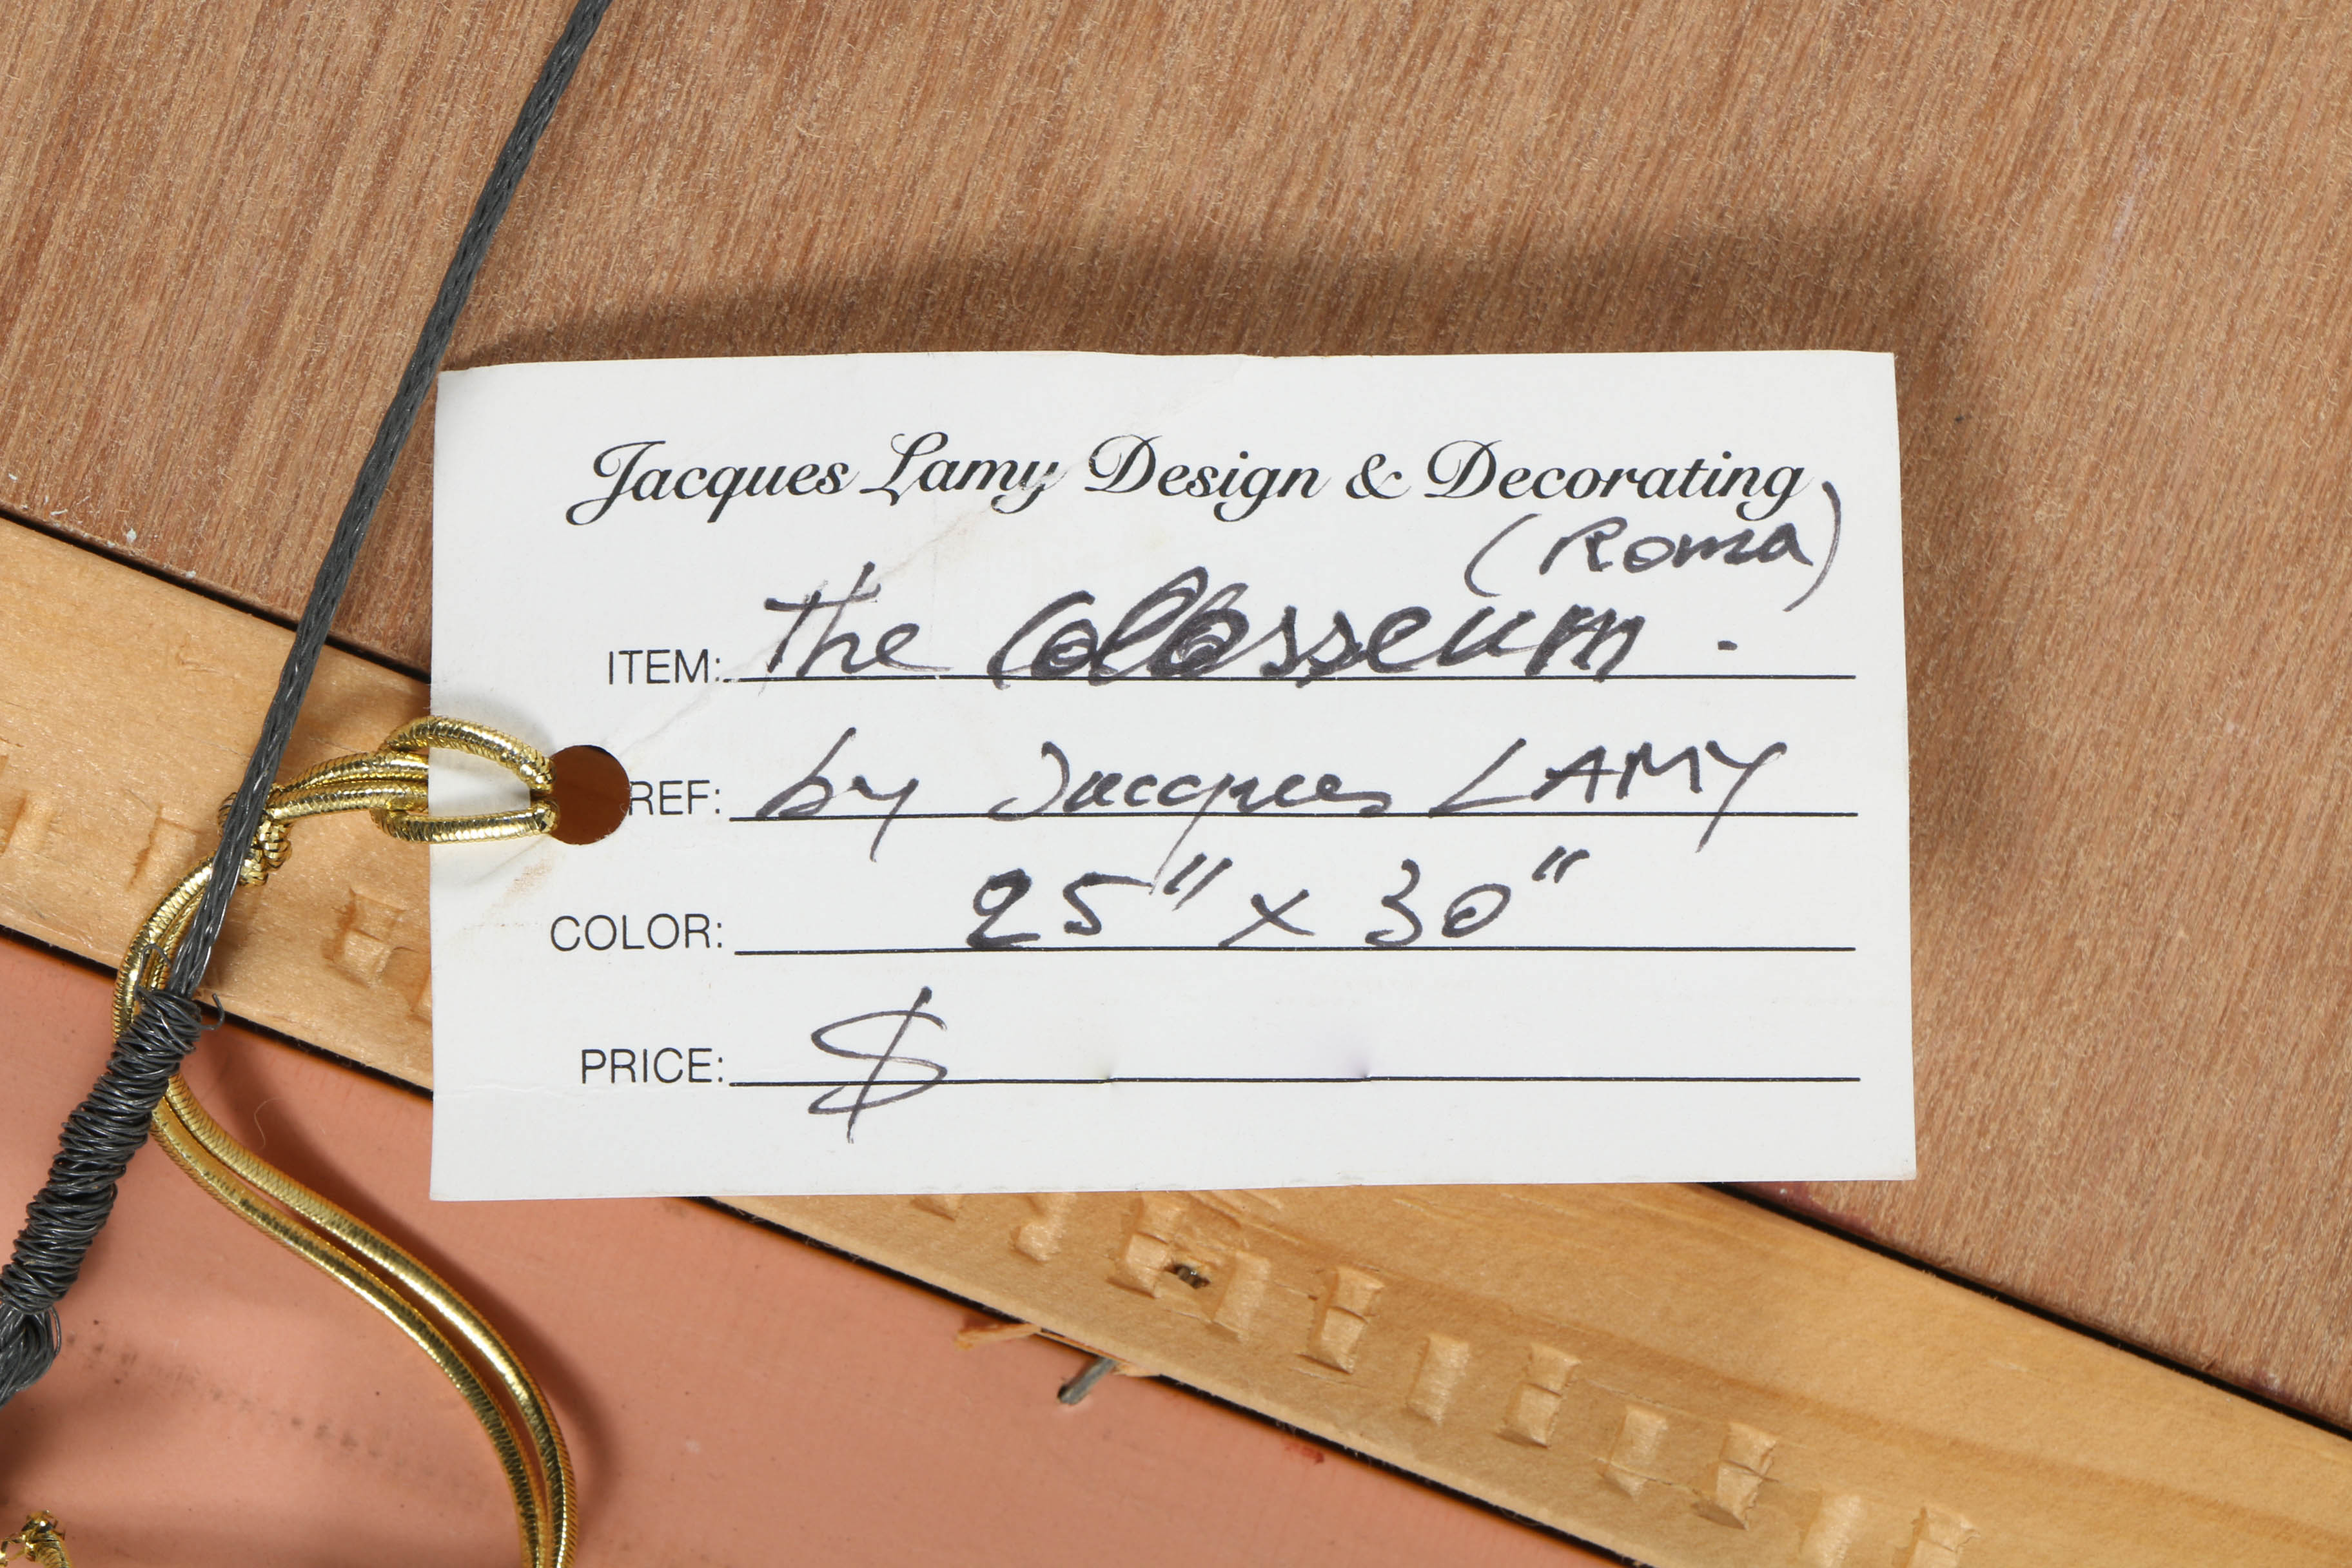 Jacques Lamy Design & Decorating
(Roma)
ITEM: The Colosseum.
REF: by Jacques LAMY
COLOR: 25" x 30"
PRICE: $